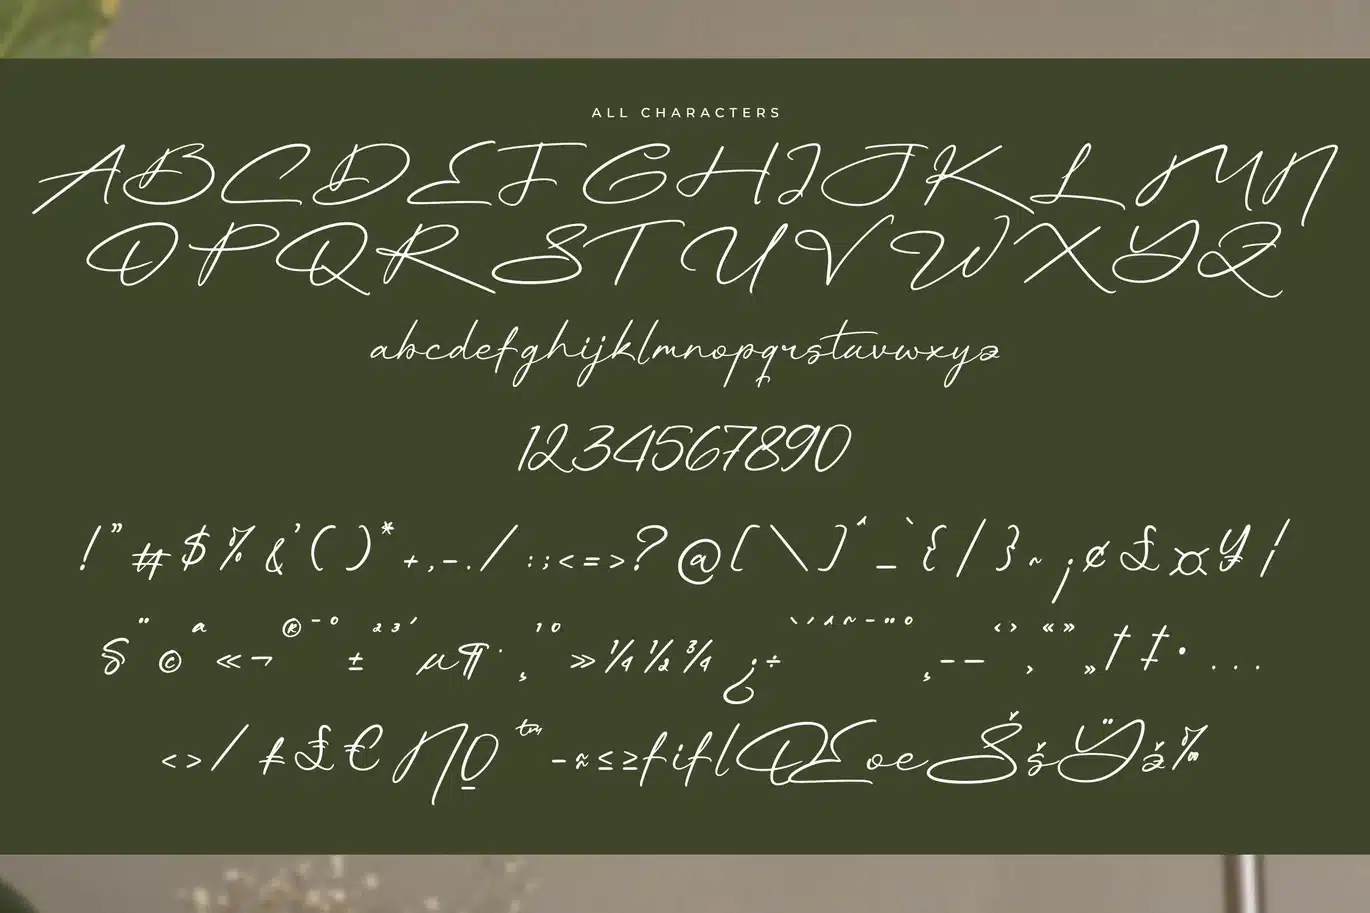 ALL CHARACTERS
ABCDEFGHIJKLMN
OPQRSTUVWXYZ
abcdefghijklmnopqrstuvwxyz
1234567890
!"#$%&'()*+,-./:;<=>?@[\]^_`{|}~¡¢£¤¥¦
§¨©ª«¬®¯°±²³´µ¶·¸¹º»¼½¾¿÷ˋˊˆ˜¯¨°¸–—‚‹›„“”†‡•...
<>/₣£€№™−≈≤≥fiflŒœŠšŸž‰